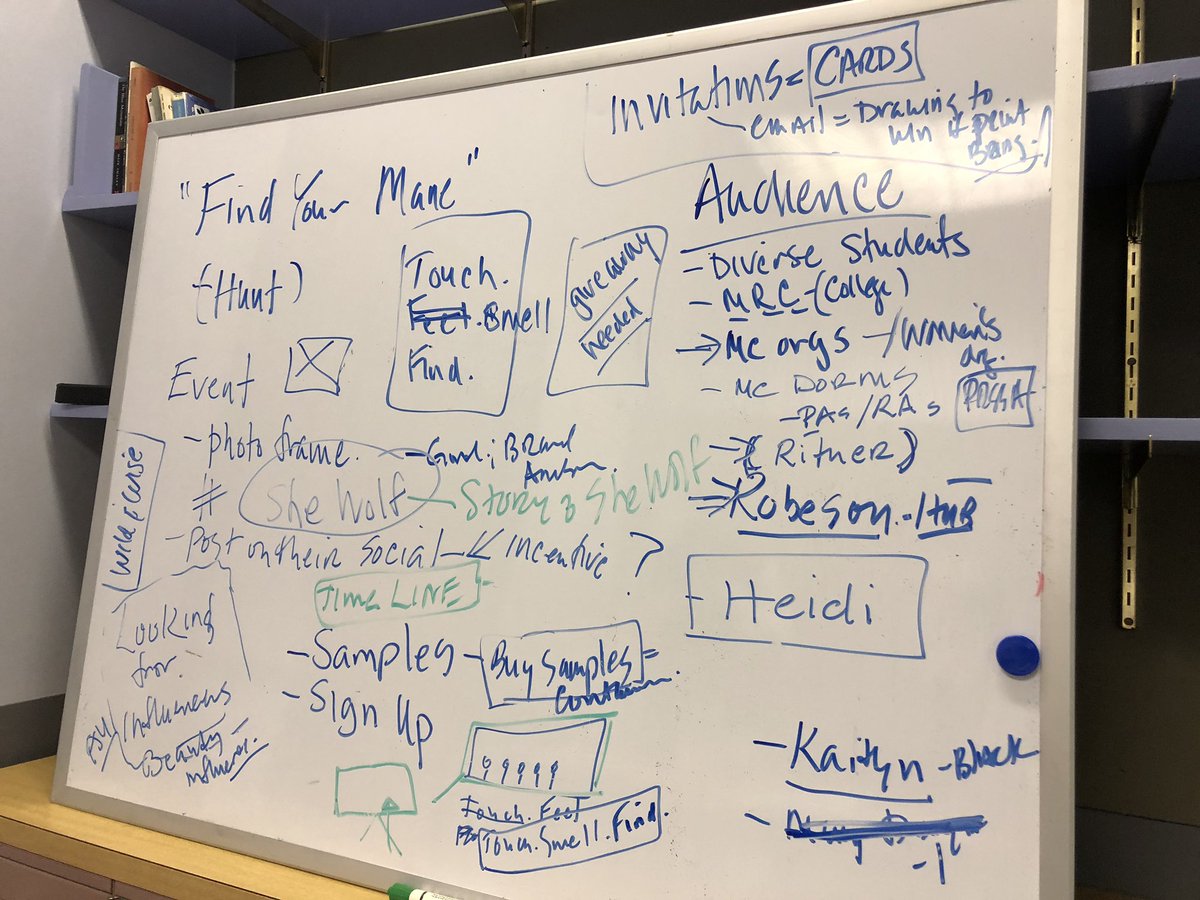 Invitations = CARDS
email = Drawing to
win if print
Bring.
"Find Your Mane"
(Hunt)
Touch.
Feel. Smell
Find.
giveaway
needed
Event
- photo frame. - Goal: Brand
# She Wolf - Story of She Wolf
- Post on their Social - Incentive ?
TIME LINE
- Samples - Buy Samples =
- Sign Up
Looking
for
Influencers
Beauty
influencer.
Touch. Feel
Touch. Smell. Find.
Audience
- Diverse Students
- MRC - (College)
→ MC orgs - Women's
org.
- MC DORMS
- PAs/RAs
(Ritner)
Robeson. Hub
- Heidi
- Kaitlyn - Black